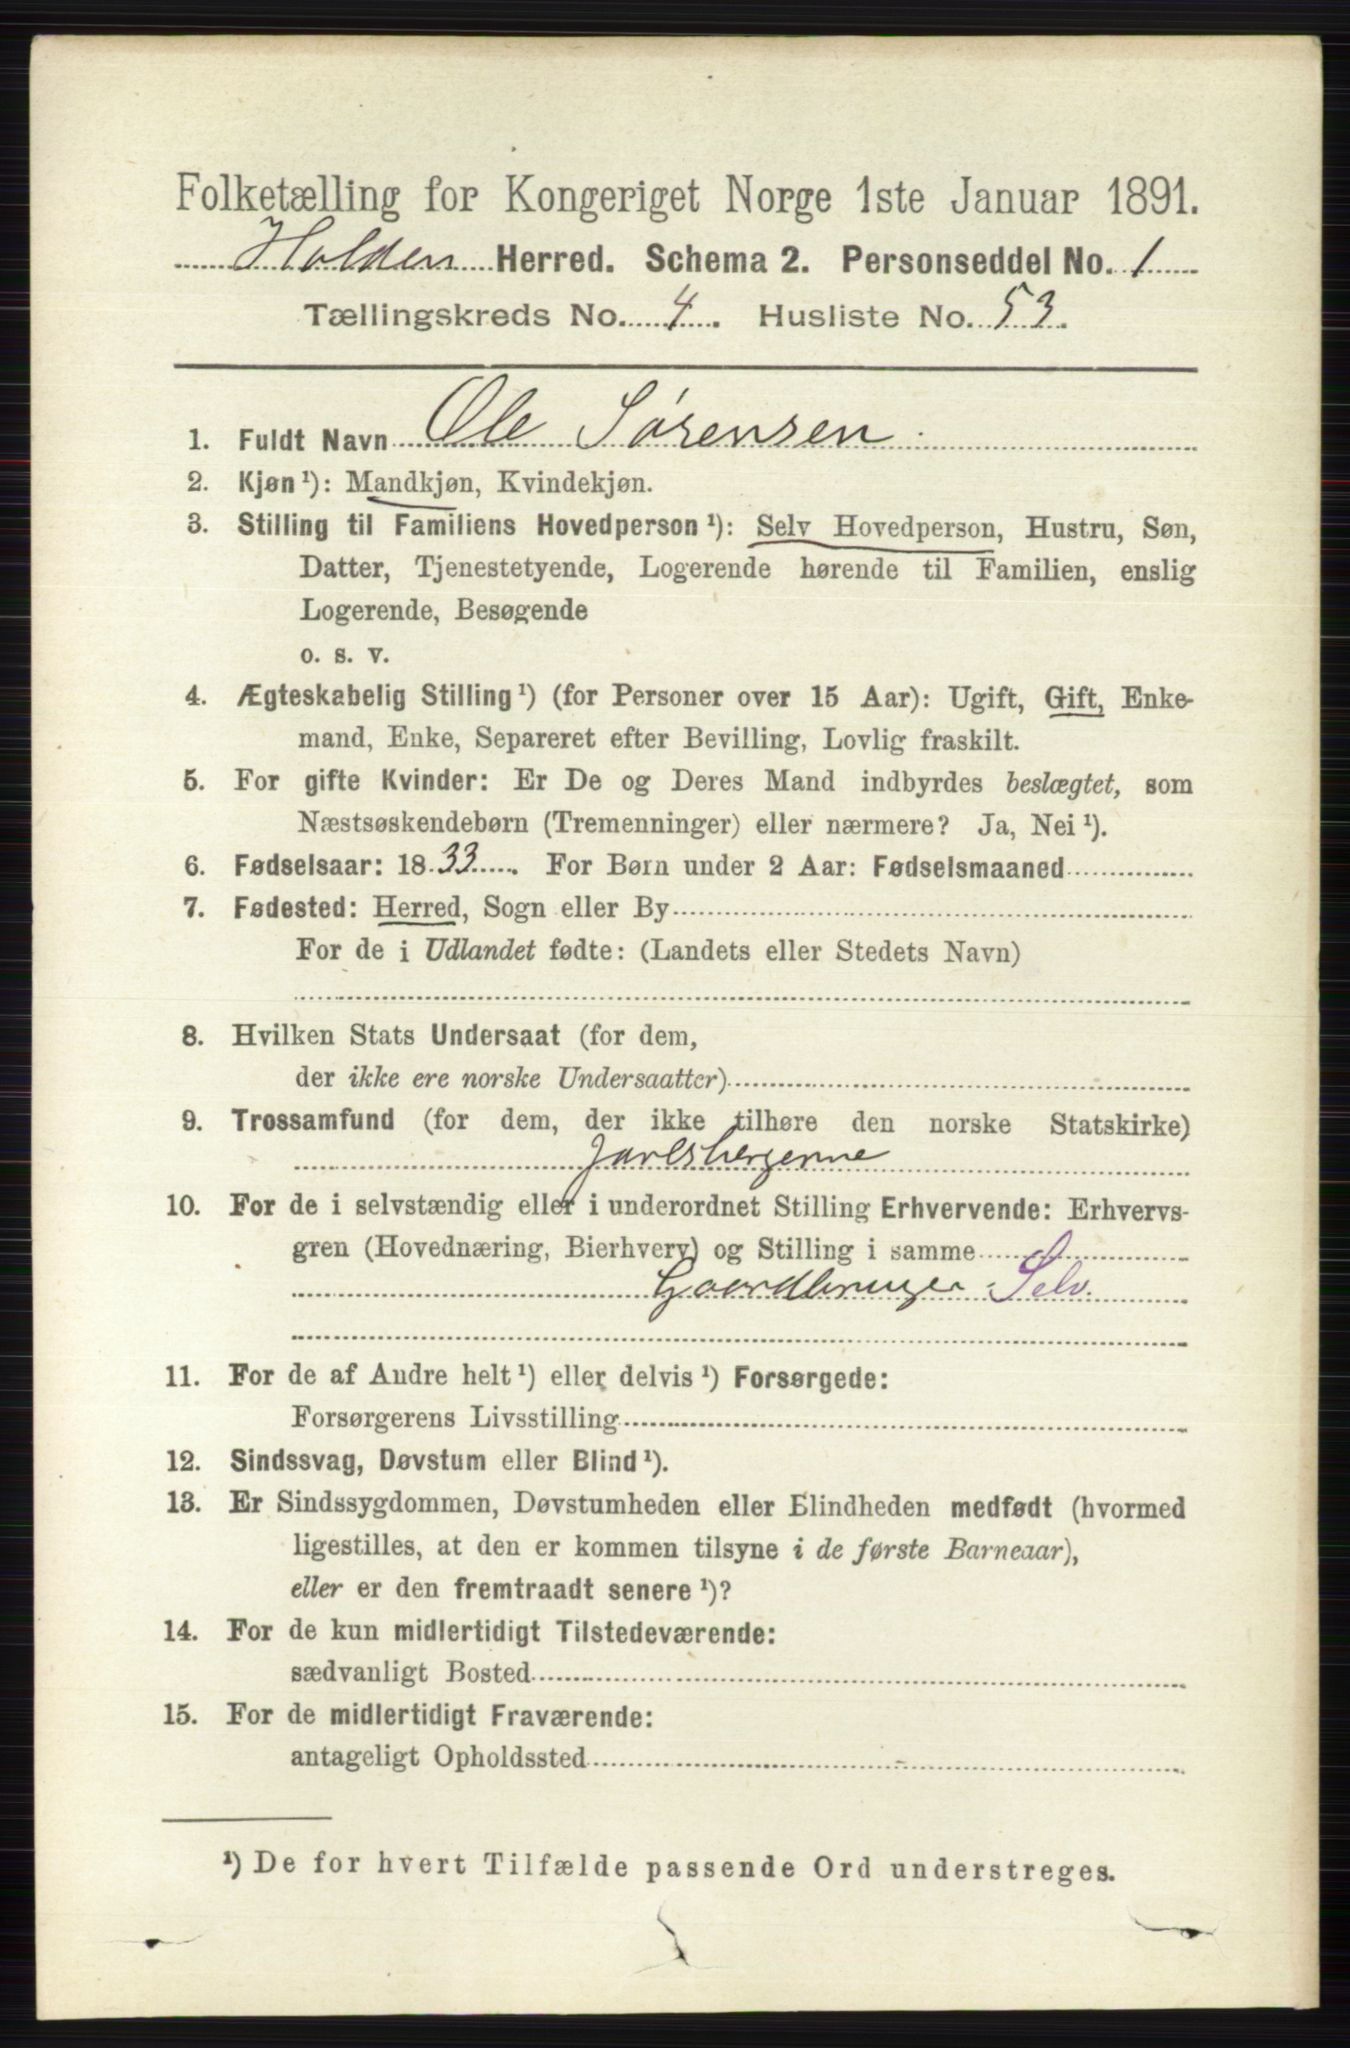 Folketælling for Kongeriget Norge 1ste Januar 1891.
Holden Herred. Schema 2. Personseddel No. 1
Tællingskreds No. 4. Husliste No. 53.
1. Fuldt Navn Ole Sørensen
2. Kjøn¹): Mandkjøn, Kvindekjøn.
3. Stilling til Familiens Hovedperson¹): Selv Hovedperson, Hustru, Søn,
Datter, Tjenestetyende, Logerende hørende til Familien, enslig
Logerende, Besøgende
o. s. v.
4. Ægteskabelig Stilling¹) (for Personer over 15 Aar): Ugift, Gift, Enke-
mand, Enke, Separeret efter Bevilling, Lovlig fraskilt.
5. For gifte Kvinder: Er De og Deres Mand indbyrdes beslægtet, som
Næstsøskendebørn (Tremenninger) eller nærmere? Ja, Nei¹).
6. Fødselsaar: 1833. For Børn under 2 Aar: Fødselsmaaned
7. Fødested: Herred, Sogn eller By
For de i Udlandet fødte: (Landets eller Stedets Navn)
8. Hvilken Stats Undersaat (for dem,
der ikke ere norske Undersaatter)
9. Trossamfund (for dem, der ikke tilhøre den norske Statskirke)
Jarlsbergerne
10. For de i selvstændig eller i underordnet Stilling Erhvervende: Erhvervs-
gren (Hovednæring, Bierhverv) og Stilling i samme
Gaardbruger Selv.
11. For de af Andre helt¹) eller delvis¹) Forsørgede:
Forsørgerens Livsstilling
12. Sindssvag, Døvstum eller Blind¹).
13. Er Sindssygdommen, Døvstumheden eller Blindheden medfødt (hvormed
ligestilles, at den er kommen tilsyne i de første Barneaar),
eller er den fremtraadt senere¹)?
14. For de kun midlertidigt Tilstedeværende:
sædvanligt Bosted
15. For de midlertidigt Fraværende:
antageligt Opholdssted
¹) De for hvert Tilfælde passende Ord understreges.